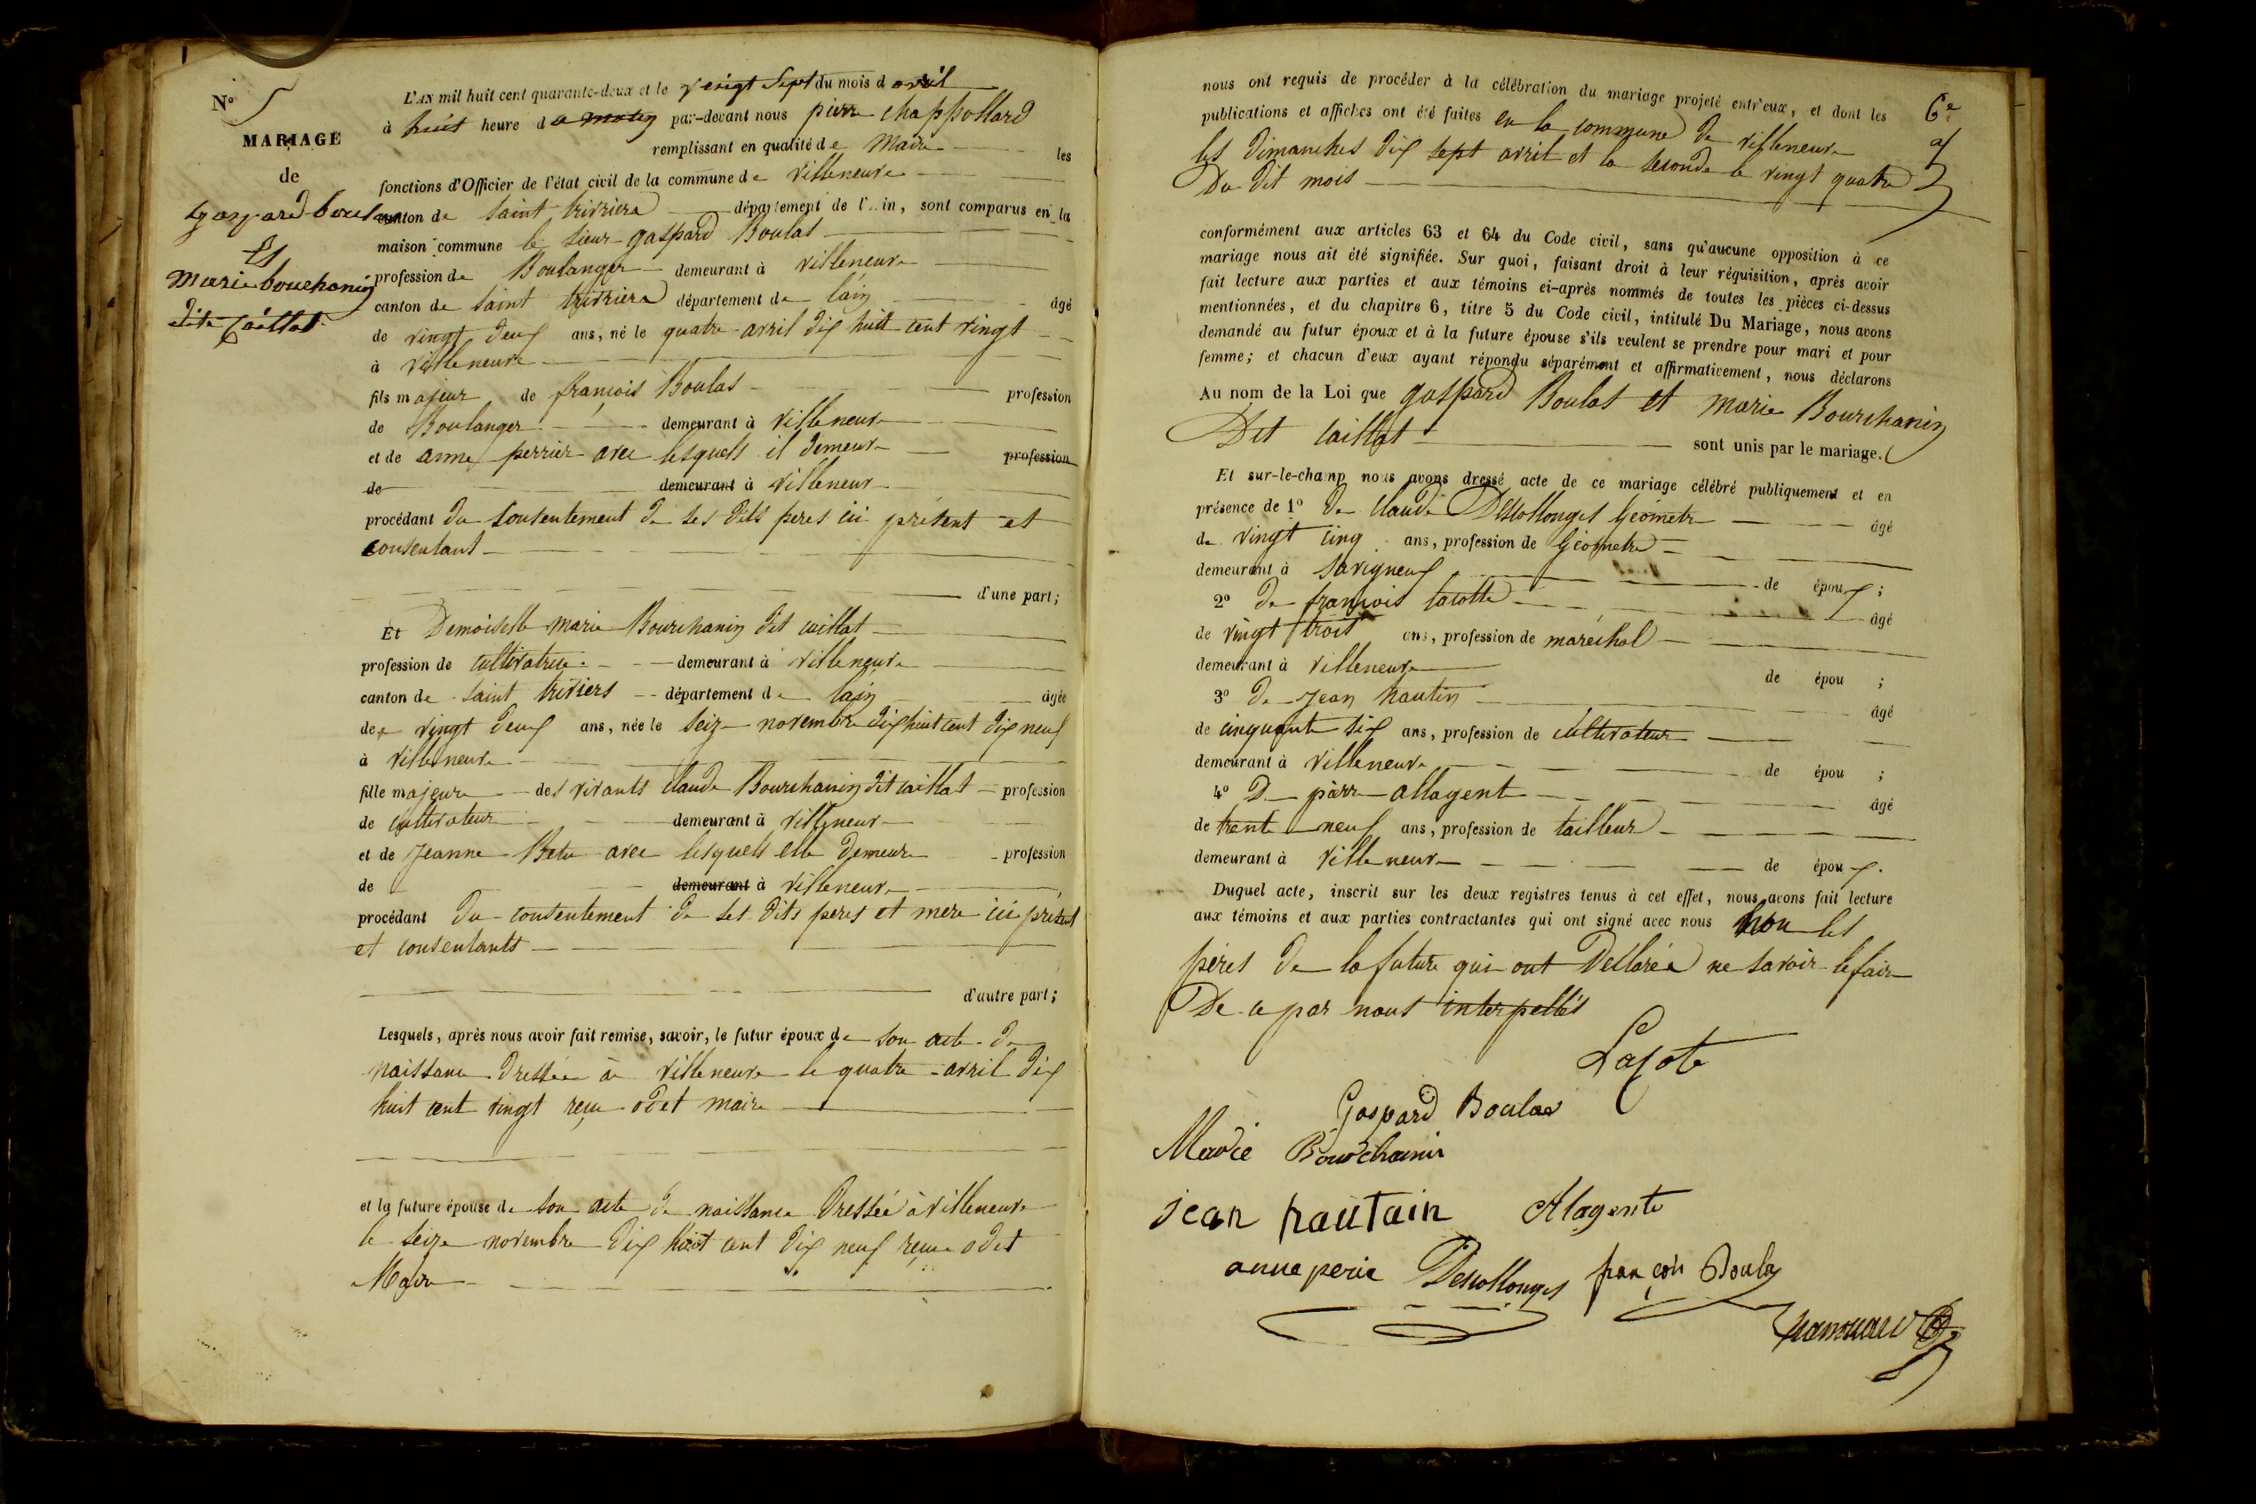 N° 5
MARIAGE
de
gaspard boulas
Et
Marie bourchanin
dite Caillat
L'AN mil huit cent quarante-deux et le vingt sept du mois d avril
à huit heure d u matin par-devant nous pierre chappollard
remplissant en qualité de Maire les
fonctions d'Officier de l'état civil de la commune de villeneuve
canton de saint trivriers département de l'Ain, sont comparus en la
maison commune le sieur gaspard Boulas
profession de Boulanger demeurant à villeneuve
canton de saint trivriers département de lain âgé
de vingt deux ans, né le quatre avril dix huit cent vingt
à villeneuve
fils majeur de francois Boulas profession
de Boulanger demeurant à villeneuve
et de anne perrier avec lesquels il demeure profession
de demeurant à villeneuve
procédant du consentement de ses dits peres ici présent et
consentant
d'une part;
Et Demoiselle marie Bourchanin dit caillat
profession de cultivatrice demeurant à villeneuve
canton de saint triviers département de lain âgée
de vingt deux ans, née le seize novembre dix huit cent dix neuf
à villeneuve
fille majeure des vivants claude Bourchanin dit caillat profession
de cultivateur demeurant à villeneuve
et de jeanne Betu avec lesquels elle demeure profession
de demeurant à villeneuve
procédant du consentement de ses dits peres et mere ici présent
et consentants
d'autre part;
Lesquels, après nous avoir fait remise, savoir, le futur époux de son acte de
naissance dressée à villeneuve le quatre avril dix
huit cent vingt reçu odet maire
et la future épouse de son acte de naissance dressée à villeneuve
le seize novembre dix huit cent dix neuf reçue odet
Maire
nous ont requis de procéder à la célébration du mariage projeté entr'eux, et dont les
publications et affiches ont été faites en la commune de villeneuve
les dimanches dix sept avril et la seconde le vingt quatre
Du dit mois
6e
conformément aux articles 63 et 64 du Code civil, sans qu'aucune opposition à ce
mariage nous ait été signifiée. Sur quoi, faisant droit à leur réquisition, après avoir
fait lecture aux parties et aux témoins ci-après nommés de toutes les pièces ci-dessus
mentionnées, et du chapitre 6, titre 5 du Code civil, intitulé Du Mariage, nous avons
demandé au futur époux et à la future épouse s'ils veulent se prendre pour mari et pour
femme; et chacun d'eux ayant répondu séparément et affirmativement, nous déclarons
Au nom de la Loi que gaspard Boulas et marie Bourchanin
Dit caillat sont unis par le mariage.
Et sur-le-champ nous avons dressé acte de ce mariage célébré publiquement et en
présence de 1° de claude Descollonges Géometre âgé
de vingt cinq ans, profession de Géometre
demeurant à savigneux de épou ;
2° de francois lacotte âgé
de vingt trois ans, profession de maréchal
demeurant à villeneuve de épou ;
3° de jean nautin âgé
de cinquante six ans, profession de cultivateur
demeurant à villeneuve de épou ;
4° De pierre allagent âgé
de trente neuf ans, profession de tailleur
demeurant à villeneuve de épou .
Duquel acte, inscrit sur les deux registres tenus à cet effet, nous avons fait lecture
aux témoins et aux parties contractantes qui ont signé avec nous non les
péres de la future qui ont Déclarée ne savoir le faire
De ce par nous interpellés
Lacote
Gaspard Boulas
Marie Bourchanin
jean nautain Alagente
anne perie Descollonges françois Boulas